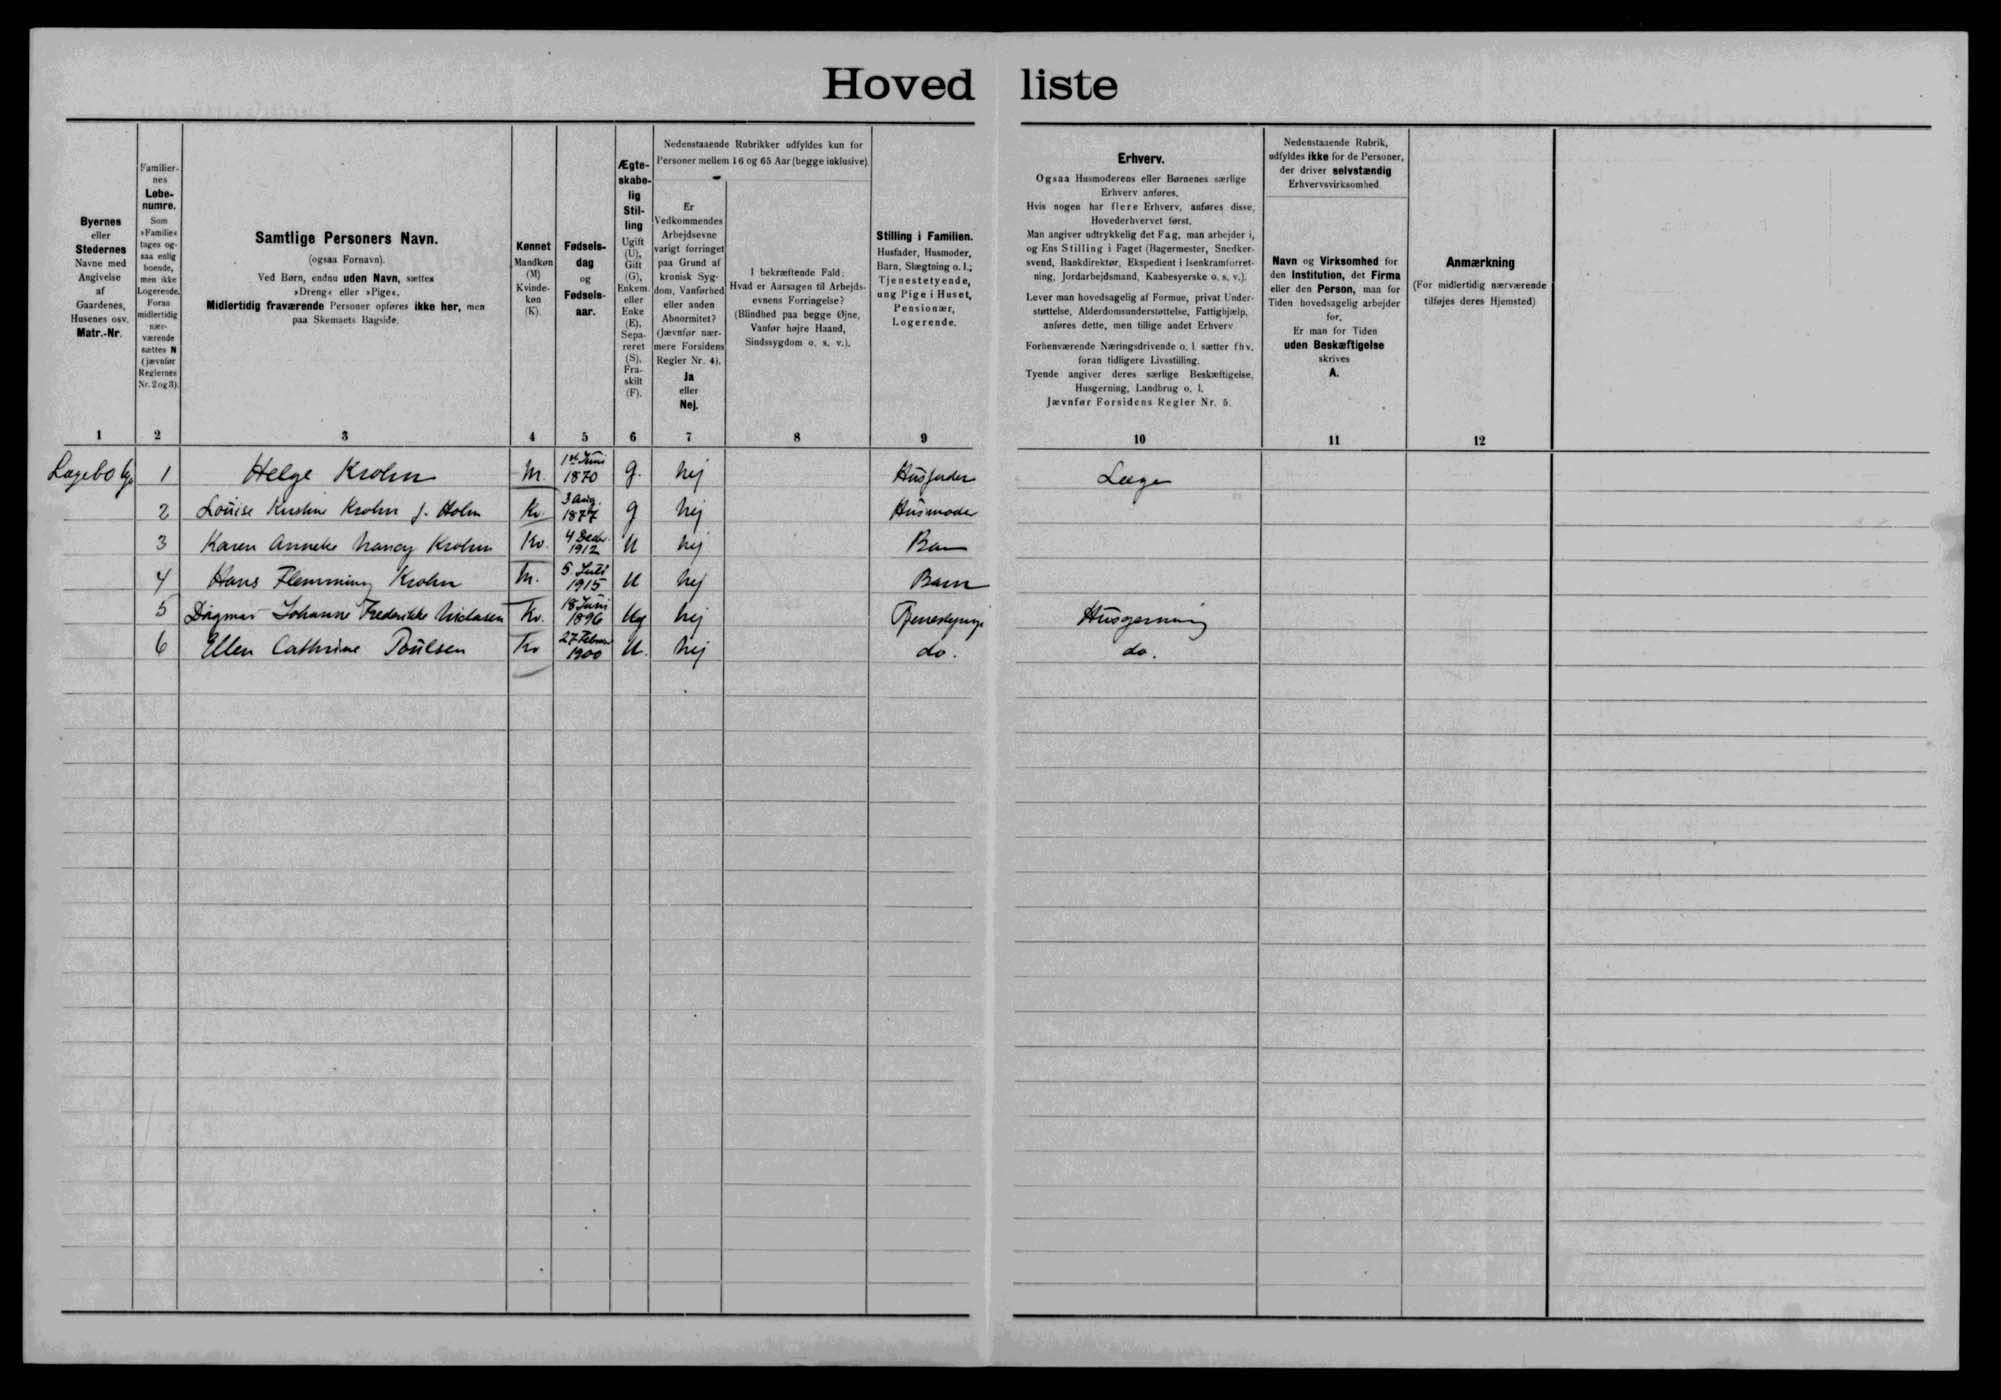 Hovedliste
Byernes
eller
Stedernes
Navne med
Angivelse
af
Gaardenes,
Husenes osv.
Matr.-Nr.
Familier-
nes
Løbe-
numre.
Som
»Familie«
tages og-
saa enlig
boende,
men ikke
Logerende.
Foran
midlertidig
nær-
værende
sættes N
(jævnfør
Reglernes
Nr. 2 og 3).
Samtlige Personers Navn.
(ogsaa Fornavn).
Ved Børn, endnu uden Navn, sættes
»Dreng« eller »Pige«.
Midlertidig fraværende Personer opføres ikke her, men
paa Skemaets Bagside.
Kønnet
Mandkøn
(M)
Kvinde-
køn
(K).
Fødsels-
dag
og
Fødsels-
aar.
Ægte-
skabe-
lig
Stil-
ling
Ugift
(U),
Gift
(G),
Enkem.
eller
Enke
(E),
Sepa-
reret
(S),
Fra-
skilt
(F).
Nedenstaaende Rubrikker udfyldes kun for
Personer mellem 16 og 65 Aar (begge inklusive).
Er
Vedkommendes
Arbejdsevne
varigt forringet
paa Grund af
kronisk Syg-
dom, Vanførhed
eller anden
Abnormitet?
(Jævnfør nær-
mere Forsidens
Regler Nr. 4).
Ja
eller
Nej.
I bekræftende Fald:
Hvad er Aarsagen til Arbejds-
evnens Forringelse?
(Blindhed paa begge Øjne,
Vanfør højre Haand,
Sindssygdom o. s. v.).
Stilling i Familien.
Husfader, Husmoder,
Barn, Slægtning o. l.;
Tjenestetyende,
ung Pige i Huset,
Pensionær,
Logerende.
Erhverv.
Ogsaa Husmoderens eller Børnenes særlige
Erhverv anføres.
Hvis nogen har flere Erhverv, anføres disse,
Hovederhvervet først.
Man angiver udtrykkelig det Fag, man arbejder i,
og Ens Stilling i Faget (Bagermester, Snedker-
svend, Bankdirektør, Ekspedient i Isenkramforret-
ning, Jordarbejdsmand, Kaabesyerske o. s. v.).
Lever man hovedsagelig af Formue, privat Under-
støttelse, Alderdomsunderstøttelse, Fattighjælp,
anføres dette, men tillige andet Erhverv
Forhenværende Næringsdrivende o. l. sætter fhv.
foran tidligere Livsstilling.
Tyende angiver deres særlige Beskæftigelse,
Husgerning, Landbrug o. l.
Jævnfør Forsidens Regler Nr. 5.
Nedenstaaende Rubrik,
udfyldes ikke for de Personer,
der driver selvstændig
Erhvervsvirksomhed
Navn og Virksomhed for
den Institution, det Firma
eller den Person, man for
Tiden hovedsagelig arbejder
for.
Er man for Tiden
uden Beskæftigelse
skrives
A.
Anmærkning
(For midlertidig nærværende
tilføjes deres Hjemsted)
1 2 3 4 5 6 7 8 9 10 11 12
Lægebolig 1 Helge Krohn M. 1st Juni 1870 g. nej Husfader Læge
2 Louise Kirstine Krohn f. Holm Kv. 3 Aug. 1877 g nej Husmoder
3 Karen Anneke Nancy Krohn Kv. 4 Decbr. 1912 U nej Barn
4 Hans Flemming Krohn M. 5. Juli 1915 U nej Barn
5 Dagmar Johanne Frederikke Nielsen Kv. 18 Juni 1896 Ug nej Husgerning
6 Ellen Cathrine Poulsen Kv 27 Februar 1900 U. nej do. do.